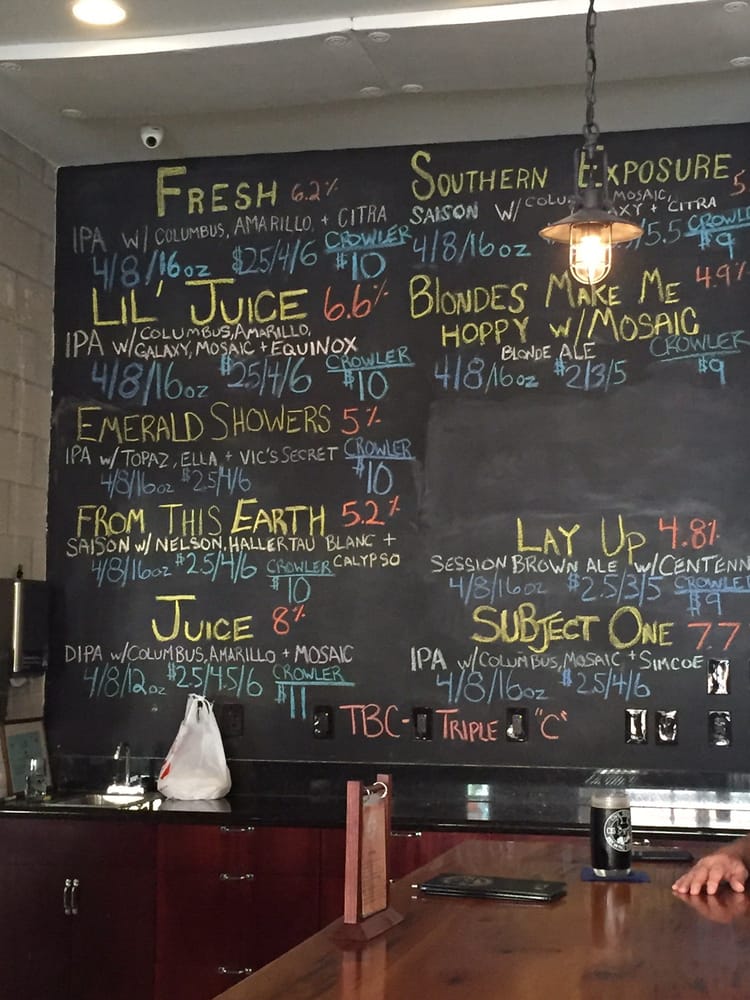 FRESH 6.2%
IPA W/ COLUMBUS, AMARILLO, + CITRA
4/8/16oz $2.5/4/6 CROWLER $10
LIL' JUICE 6.6%
IPA W/ COLUMBUS, AMARILLO,
GALAXY, MOSAIC + EQUINOX
4/8/16oz $2.5/4/6 CROWLER $10
EMERALD SHOWERS 5%
IPA W/ TOPAZ, ELLA + VIC'S SECRET
4/8/16oz $2.5/4/6 CROWLER $10
FROM THIS EARTH 5.2%
SAISON W/ NELSON, HALLERTAU BLANC +
CALYPSO
4/8/16oz $2.5/4/6 CROWLER $10
JUICE 8%
DIPA W/ COLUMBUS, AMARILLO + MOSAIC
4/8/12oz $2.5/4.5/6 CROWLER $11
SOUTHERN EXPOSURE 5
SAISON W/ MOSAIC,
+ CITRA
4/8/16oz /5.5 CROWL $9
BLONDES MAKE ME 4.9%
HOPPY W/ MOSAIC
BLONDE ALE
4/8/16oz $2/3/5 CROWLER $9
LAY UP 4.8%
SESSION BROWN ALE W/ CENTENN
4/8/16oz $2.5/3/5 CROWLER $9
SUBJECT ONE 7.7
IPA W/ COLUMBUS, MOSAIC + SIMCOE
4/8/16oz $2.5/4/6
TBC- TRIPLE "C"